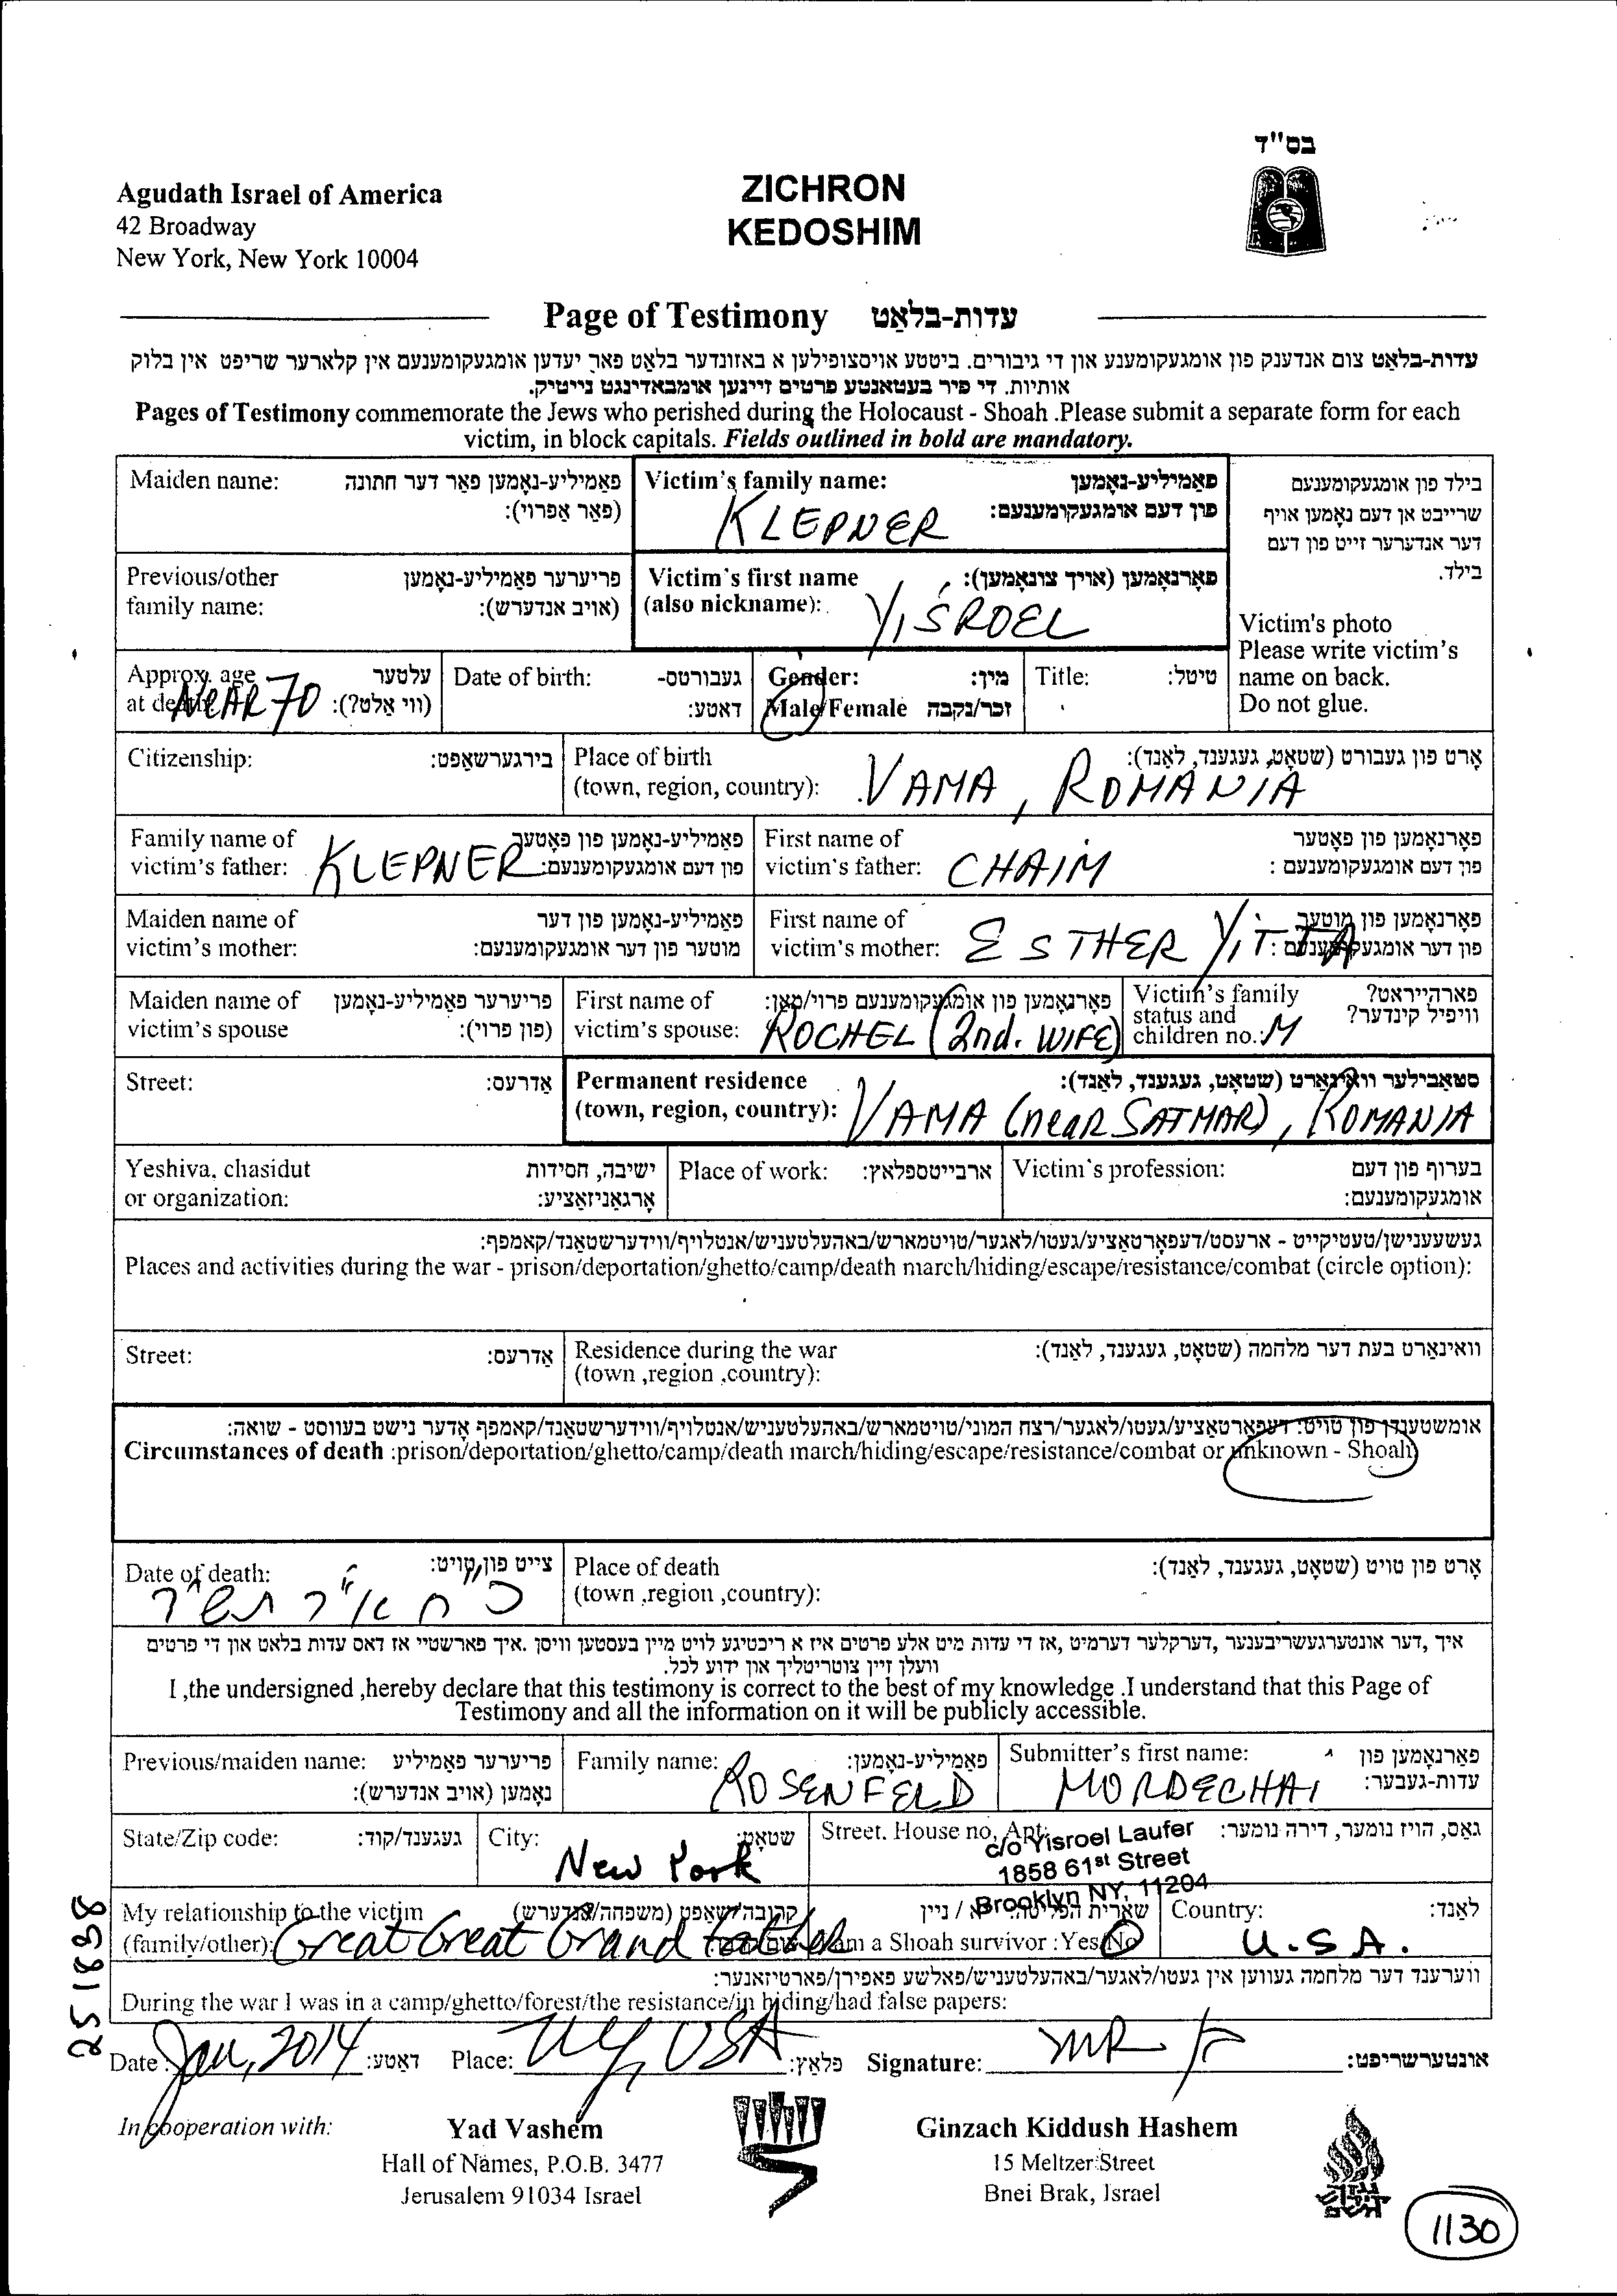 בס"ד
Agudath Israel of America
42 Broadway
New York, New York 10004
ZICHRON
KEDOSHIM
Page of Testimony עדות-בלאַט
עדות-בלאַט צום אנדענק פון אומגעקומענע און די גיבורים. ביטטע אויסצופילען א באזונדער בלאט פאר יעדען אומגעקומענעם אין קלארער שריפט אין בלוק
אותיות. די פיר בעטאנטע פרטים זיינען אומבאדינגט נייטיק.
Pages of Testimony commemorate the Jews who perished during the Holocaust - Shoah .Please submit a separate form for each
victim, in block capitals. Fields outlined in bold are mandatory.
Maiden name: פאַמיליע-נאָמען פאַר דער חתונה
(פאַר אַפרוי):
Victim's family name: פאַמיליע-נאָמען
פון דעם אומגעקומענעם:
KLEPNER
בילד פון אומגעקומענעם
שרייבט אן דעם נאָמען אויף
דער אנדערער זייט פון דעם
בילד.
Victim's photo
Please write victim's
name on back.
Do not glue.
Previous/other פריערער פאַמיליע-נאָמען
family name: (אויב אנדערש):
Victim's first name פאָרנאָמען (אויך צונאָמען):
(also nickname):
YISROEL
Approx. age עלטער
at death (ווי אַלט?):
NEAR 70
Date of birth: געבורטס-
דאַטע:
Gender: מין:
Male/Female זכר/נקבה
Title: טיטל:
Citizenship: בירגערשאַפט:
Place of birth אָרט פון געבורט (שטאָט, געגענד, לאַנד):
(town, region, country): VAMA, ROMANIA
Family name of פאַמיליע-נאָמען פון פאָטער
victim's father: KLEPNER פון דעם אומגעקומענעם:
First name of פאָרנאָמען פון פאָטער
victim's father: CHAIM פון דעם אומגעקומענעם :
Maiden name of פאַמיליע-נאָמען פון דער
victim's mother: מוטער פון דער אומגעקומענעם:
First name of פאָרנאָמען פון מוטער
victim's mother: ESTHER YITTA פון דער אומגעקומענעם:
Maiden name of פריערער פאַמיליע-נאָמען
victim's spouse (פון פרוי):
First name of פאָרנאָמען פון אומגעקומענעם פרוי/מאַן:
victim's spouse: ROCHEL (2nd. WIFE)
Victim's family פארהייראט?
status and וויפיל קינדער?
children no.: M
Street: אַדרעס:
Permanent residence סטאַבילער וואוינאָרט (שטאָט, געגענד, לאַנד):
(town, region, country): VAMA (neaR SATMAR), ROMANIA
Yeshiva, chasidut ישיבה, חסידות
or organization: אָרגאַניזאַציע:
Place of work: ארבייטספלאַץ:
Victim's profession: בערוף פון דעם
אומגעקומענעם:
געשעענישן/טעטיקייט - ארעסט/דעפאָרטאַציע/געטו/לאַגער/טויטמארש/באהעלטעניש/אנטלויף/ווידערשטאַנד/קאמפף:
Places and activities during the war - prison/deportation/ghetto/camp/death march/hiding/escape/resistance/combat (circle option):
Street: אַדרעס:
Residence during the war וואוינאָרט בעת דער מלחמה (שטאָט, געגענד, לאַנד):
(town ,region ,country):
אומשטענדן פון טויט: דעפאָרטאַציע/געטו/לאגער/רצח המוני/טויטמארש/באהעלטעניש/אנטלויף/ווידערשטאַנד/קאמפף אָדער נישט בעוווסט - שואה:
Circumstances of death :prison/deportation/ghetto/camp/death march/hiding/escape/resistance/combat or unknown - Shoah
Date of death: צייט פון טויט:
כ"ח אייר תש"ד
Place of death אָרט פון טויט (שטאָט, געגענד, לאַנד):
(town ,region ,country):
איך ,דער אונטערגעשריבענער ,דערקלער דערמיט ,אז די עדות מיט אלע פרטים איז א ריכטיגע לויט מיין בעסטען וויסן .איך פארשטיי אז דאס עדות בלאט און די פרטים
וועלן זיין צוטריטליך און ידוע לכל.
I ,the undersigned ,hereby declare that this testimony is correct to the best of my knowledge .I understand that this Page of
Testimony and all the information on it will be publicly accessible.
Previous/maiden name: פריערער פאַמיליע
נאָמען (אויב אנדערש):
Family name: פאַמיליע-נאָמען:
ROSENFELD
Submitter's first name: פאָרנאָמען פון
עדות-געבער:
MORDECHAI
State/Zip code: געגענד/קוד:
City: שטאָט:
New York
Street, House no, Apt: גאַס, הויז נומער, דירה נומער:
c/o Yisroel Laufer
1858 61st Street
Brooklyn NY, 11204
My relationship to the victim קרובה'שאַפט (משפחה/אַנדערש)
(family/other): Great Great Grand father
שארית הפליטה: / ניין
I am a Shoah survivor :Yes/No
Country: לאַנד:
U.S.A.
ווערענד דער מלחמה געווען אין געטו/לאגער/באהעלטעניש/פאלשע פאפירן/פארטיזאנער:
During the war I was in a camp/ghetto/forest/the resistance/in hiding/had false papers:
Date: Jan, 2014 דאַטע: Place: NY, USA פלאַץ: Signature: MR אונטערשריפט:
251898
In cooperation with:
Yad Vashem
Hall of Names, P.O.B. 3477
Jerusalem 91034 Israel
Ginzach Kiddush Hashem
15 Meltzer Street
Bnei Brak, Israel
1130